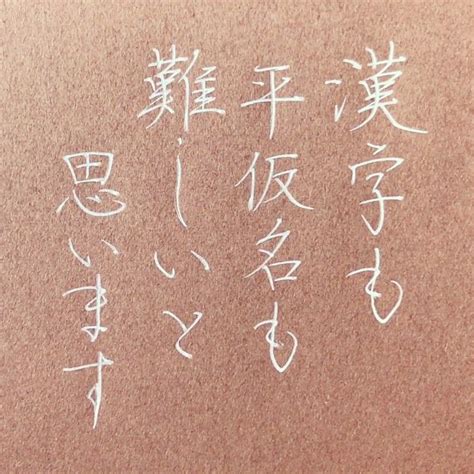 漢字も
平仮名も
難しいと
思います